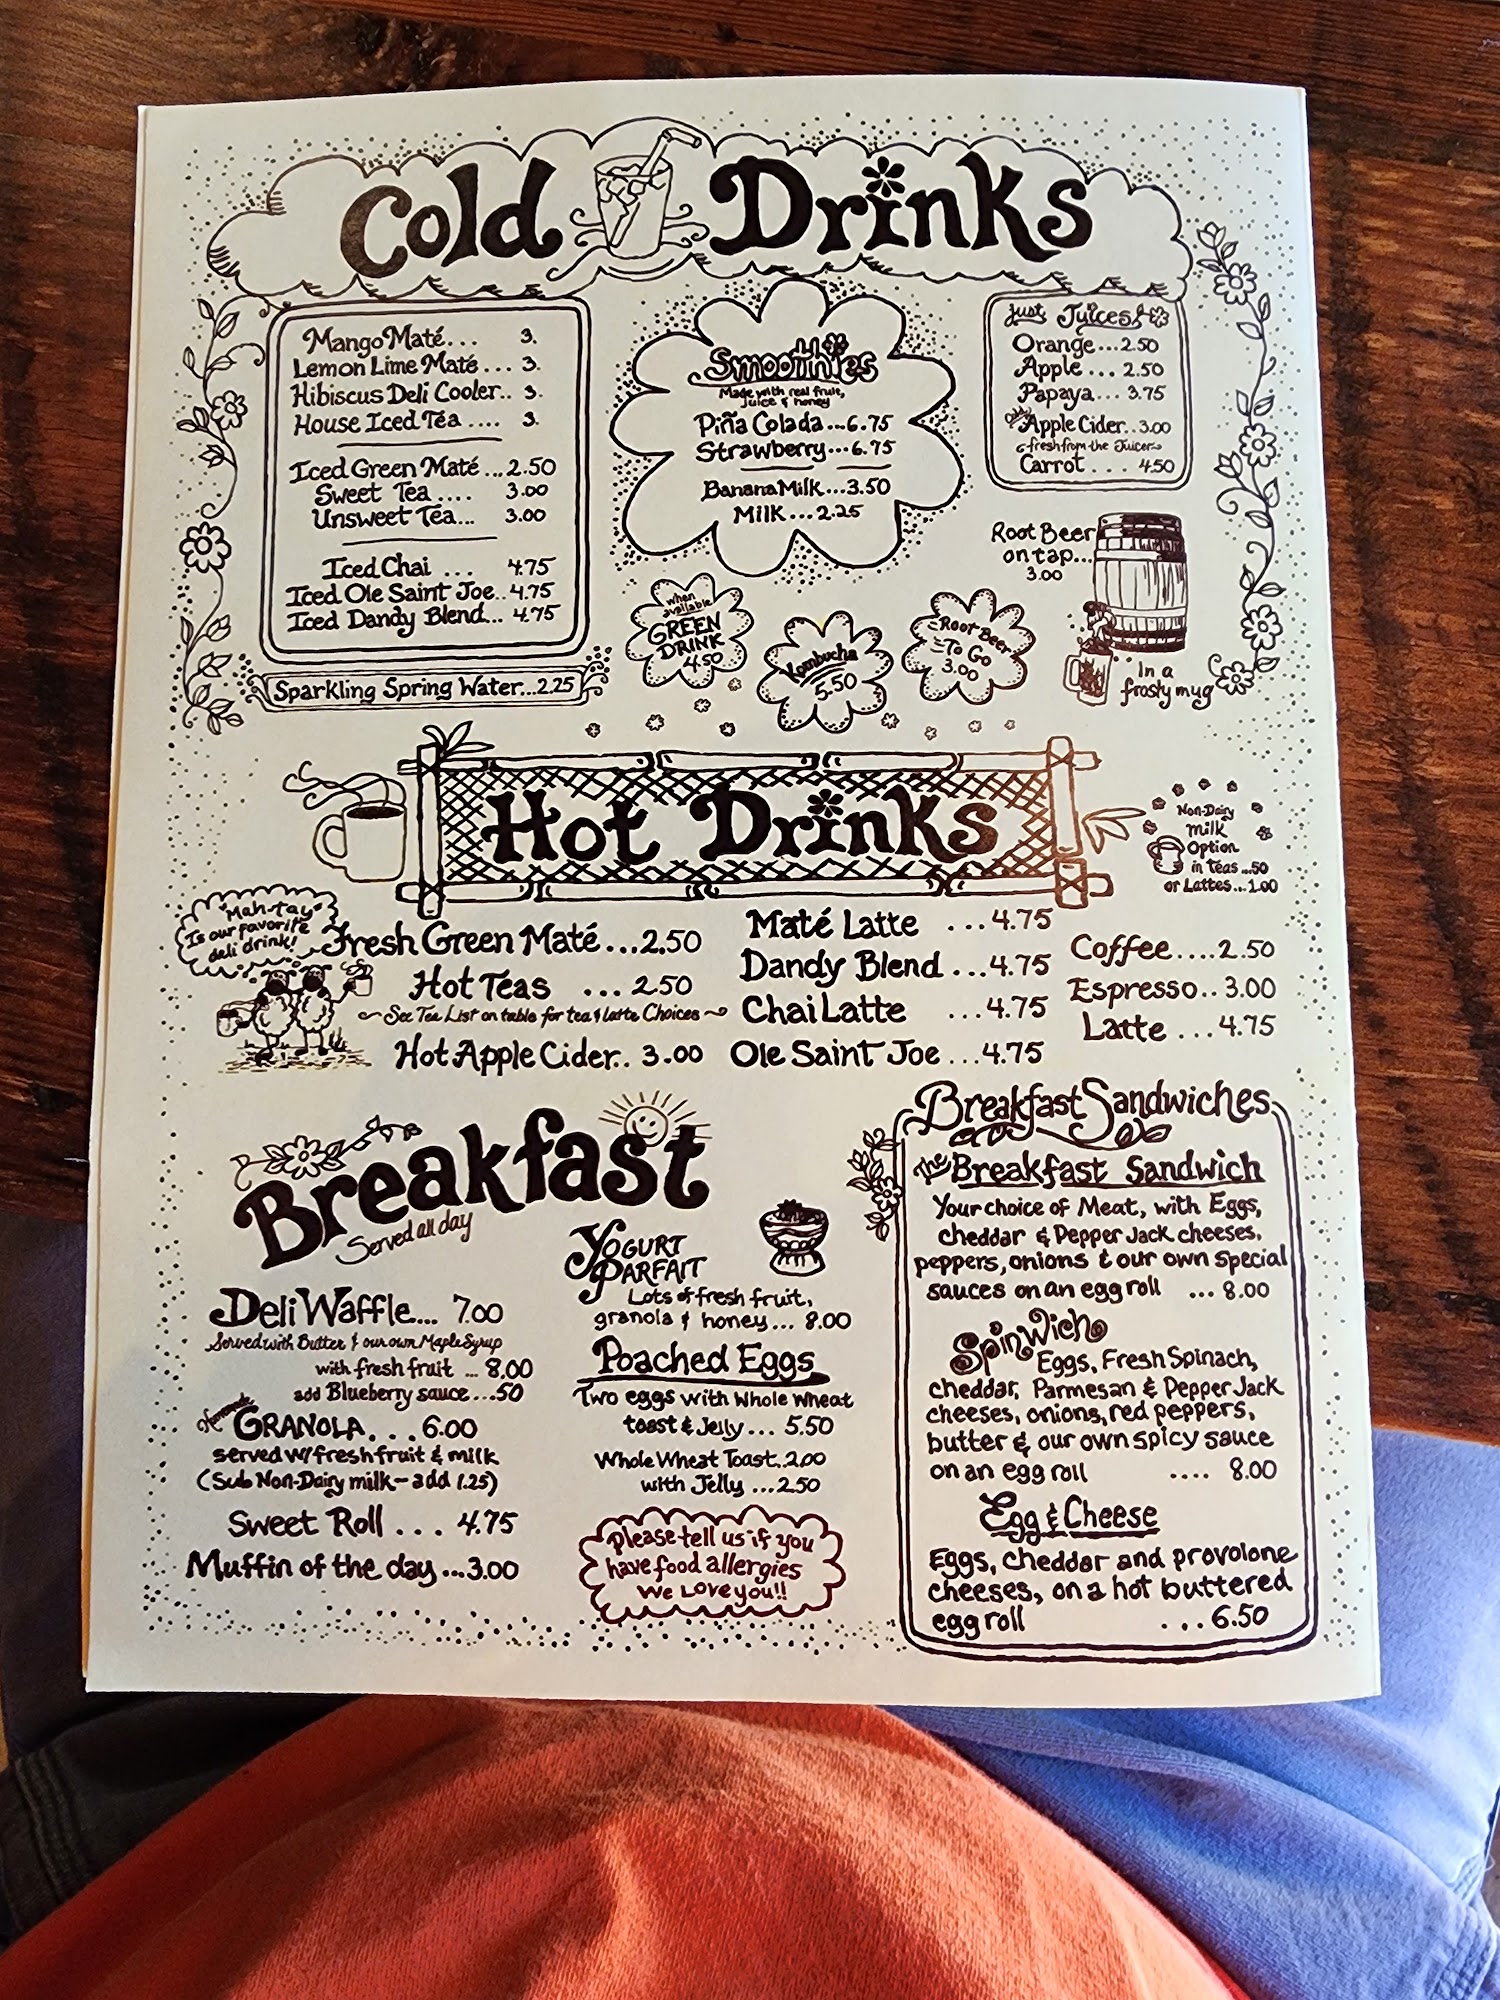 Cold Drinks
Mango Maté... 3.
Lemon Lime Maté ... 3.
Hibiscus Deli Cooler.. 3.
House Iced Tea .... 3.
Iced Green Maté ...2.50
Sweet Tea .... 3.00
Unsweet Tea... 3.00
Iced Chai ... 4.75
Iced Ole Saint Joe.. 4.75
Iced Dandy Blend... 4.75
Sparkling Spring Water...2.25
Smoothies
Made with real fruit,
juice & honey
Piña Colada...6.75
Strawberry...6.75
Banana Milk...3.50
Milk...2.25
Just Juices
Orange...2.50
Apple ... 2.50
Papaya... 3.75
Apple Cider..3.00
fresh from the Juicer
Carrot . . . 4.50
Root Beer
on tap...
3.00
In a
frosty mug
when
available
GREEN
DRINK
4.50
Kombucha
5.50
Root Beer
To Go
3.00
Hot Drinks
Non-Dairy
milk
Option
in Teas...50
or Lattes...1.00
"Mah-tay"
Is our favorite
deli drink!
Fresh Green Maté...2.50
Hot Teas ... 2.50
See Tea List on table for tea & latte Choices
Hot Apple Cider.. 3.00
Maté Latte ...4.75
Dandy Blend ...4.75
Chai Latte ...4.75
Ole Saint Joe ...4.75
Coffee....2.50
Espresso.. 3.00
Latte ... 4.75
Breakfast
Served all day
Deli Waffle... 7.00
Served with Butter & our own Maple Syrup
with fresh fruit ... 8.00
add Blueberry sauce...50
Homemade
GRANOLA. . . 6.00
served w/ fresh fruit & milk
(Sub Non-Dairy milk - add 1.25)
Sweet Roll ... 4.75
Muffin of the day...3.00
YOGURT
PARFAIT
Lots of fresh fruit,
granola & honey... 8.00
Poached Eggs
Two eggs with whole wheat
toast & Jelly... 5.50
Whole Wheat Toast..2.00
with Jelly ...2.50
Please tell us if you
have food allergies
We Love you!!
Breakfast Sandwiches
The Breakfast Sandwich
Your choice of Meat, with Eggs,
cheddar & Pepper Jack cheeses,
peppers, onions & our own special
sauces on an egg roll ... 8.00
Spinwich
Eggs, Fresh Spinach,
cheddar, Parmesan & Pepper Jack
cheeses, onions, red peppers,
butter & our own spicy sauce
on an egg roll .... 8.00
Egg & Cheese
Eggs, cheddar and provolone
cheeses, on a hot buttered
egg roll ...6.50